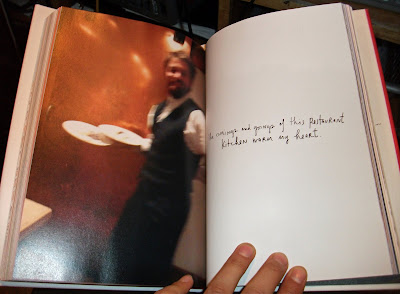 comings and goings of this restaurant
kitchen warm my heart.